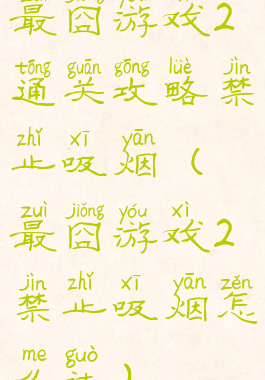 最囧游戏2
tōng guān gōng lüè jìn
通关攻略禁
zhǐ xī yān
止吸烟（
zuì jiǒng yóu xì
最囧游戏2
jìn zhǐ xī yān zěn
禁止吸烟怎
me guò